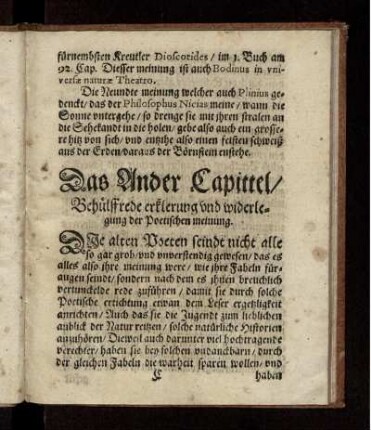 fürnembsten Kreutler Dioscorides / im 1. Buch am
92. Cap. Diesser meinung ist auch Bodinus in vni-
versæ naturæ Theatro.
Die Neundte meinung welcher auch Plinius ge-
denckt / das der Philosophus Nicias meine / wann die
Sonne untergehe / so drenge sie mit ihren stralen an
die Sehekandt in die holen / gebe also auch ein grosse-
re hitz von sich / und entzihe also einen feisten schweiß
aus der Erden / daraus der Börnstein enstehe.
Das Ander Capittel /
Behülffrede erklerung vnd widerle-
gung der Poetischen meinung.
DIe alten Poeten seindt nicht alle
so gar grob / vnd vnverstendig gewesen / das es
alles also ihre meinung were / wie ihre Fabeln für-
augen seindt / sondern nach dem es ihnen breuchlich
vertunckelde rede zuführen / damit sie durch solche
Poetische ertichtung etwan dem Leser ergetzligkeit
anrichten / Auch das sie die Jugendt zum lieblichen
anblick der Natur reitzen / solche natürliche Historien
anzuhören / Dieweil auch darunter viel hochtragende
verechter / haben sie bey solchen vndanckbarn / durch
der gleichen Fabeln die warheit sparen wollen / vnd
C haben